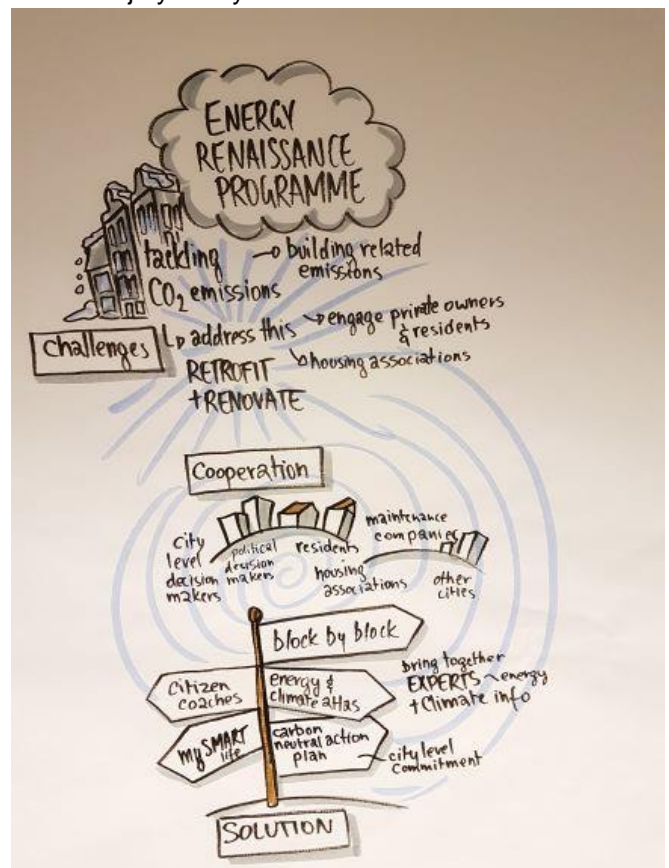 ENERGY
RENAISSANCE
PROGRAMME
tackling
CO2 emissions
building related
emissions
Challenges
address this
RETROFIT
+RENOVATE
engage private owners
& residents
housing associations
Cooperation
city
level
decision
makers
political
decision
makers
residents
housing
associations
maintenance
companies
other
cities
block by block
citizen
coaches
energy &
climate atlas
bring together
EXPERTS energy
+ climate info
my SMART
life
carbon
neutral action
plan
city level
commitment
SOLUTION